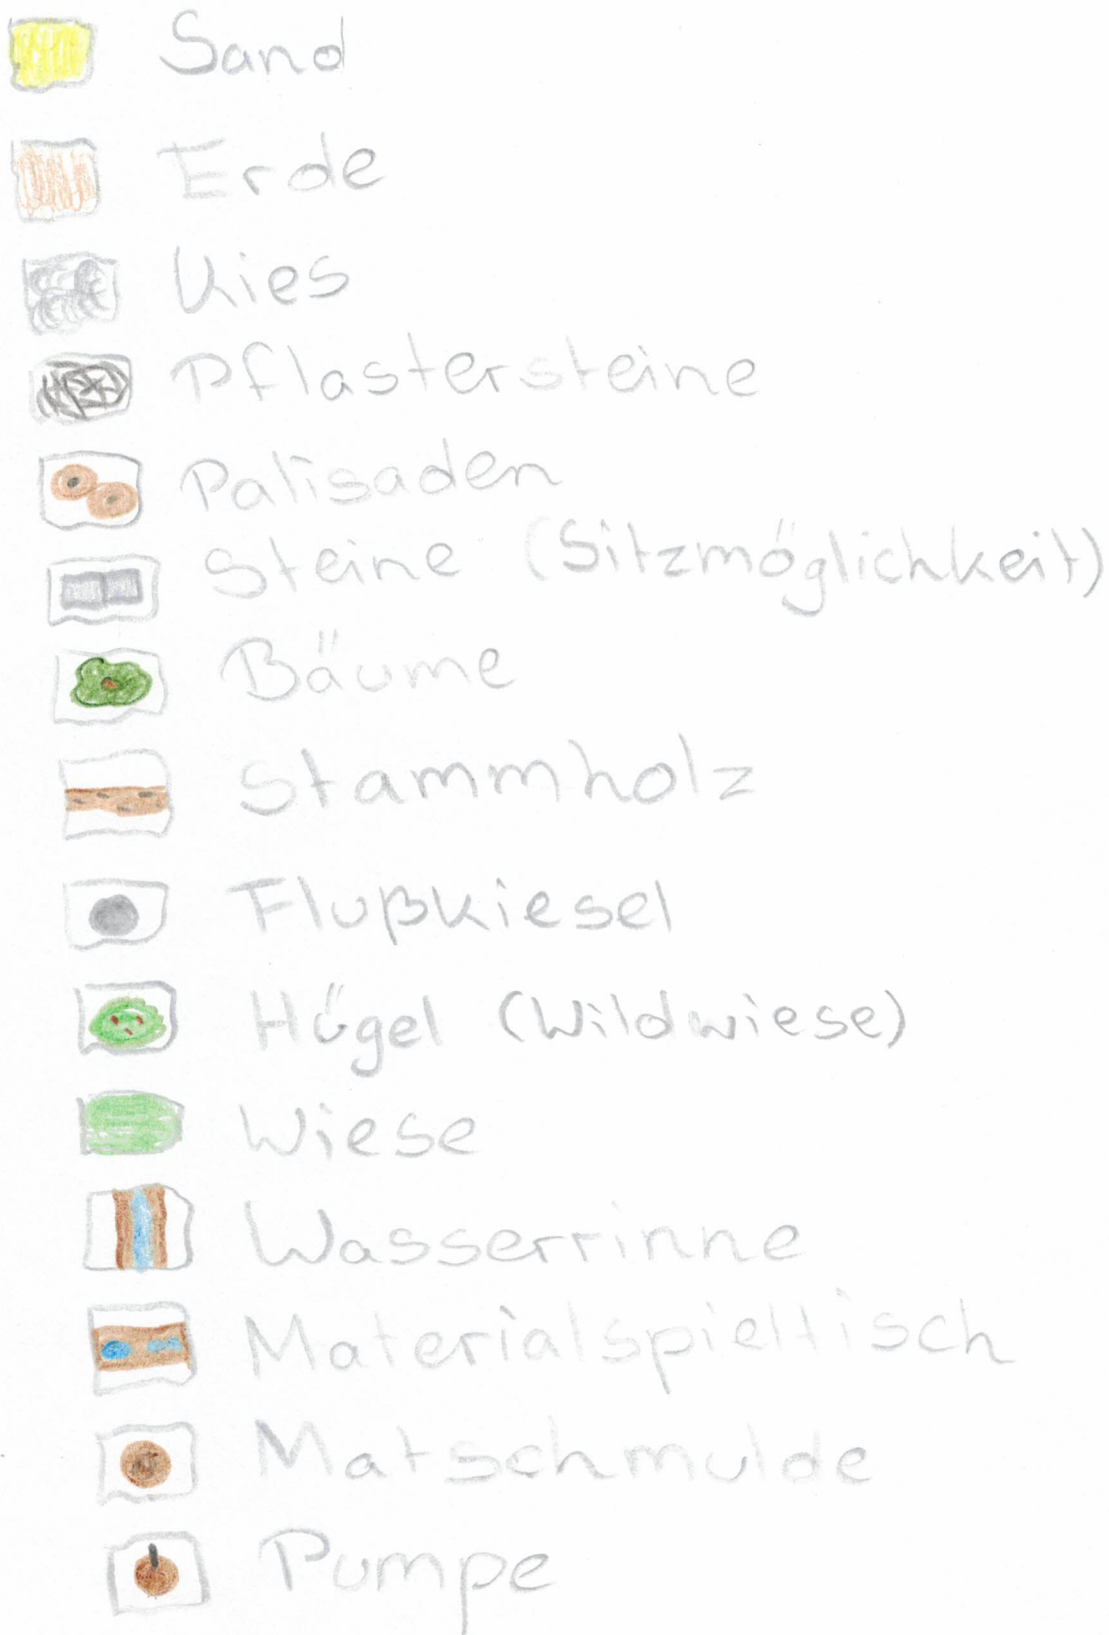 Sand
Erde
Kies
Pflastersteine
Palisaden
Steine (Sitzmöglichkeit)
Bäume
Stammholz
Flußkiesel
Hügel (Wildwiese)
Wiese
Wasserrinne
Materialspieltisch
Matschmulde
Pumpe